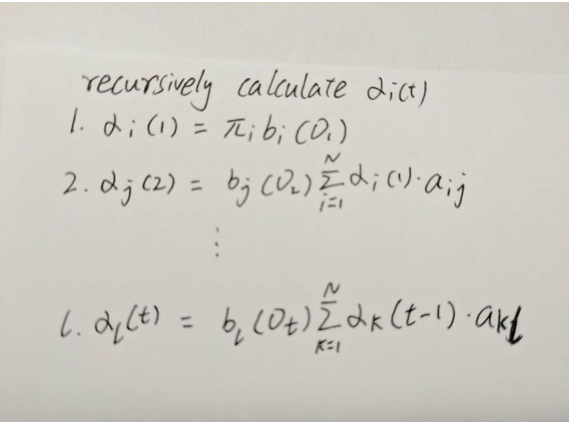 recursively calculate αi(t)
1. αi(1) = πi bi(O1)
2. αj(2) = bj(O2) Σ_{i=1}^{N} αi(1)·aij
⋮
l. αl(t) = bl(Ot) Σ_{k=1}^{N} αk(t-1)·akl